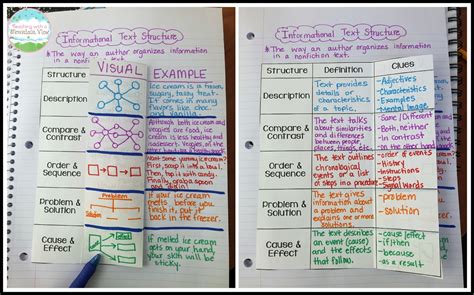 Teaching with a
Mountain View
Informational Text Structure
• The way an author organizes information
in a nonfiction text.
Structure
VISUAL
EXAMPLE
Description
Ice cream is a frozen,
sugary, tasty treat.
It comes in many
flavors like chocolate
and vanilla.
Compare &
Contrast
Although both ice cream and
veggies are food, ice
cream is less healthy and
is a dessert. Veggies, on the
Order &
Sequence
Want some yummy ice cream?
First, scoop it into a bowl.
Then, top it with candy.
Finally, grab a spoon
and dig in!
Problem &
Solution
Problem
Solution
If your ice cream
melts before you
finish it, put it
back in the freezer.
Cause &
Effect
If melted ice cream
gets on your hand,
your skin will be
sticky.
Informational Text Structure
• The way an author organizes information
in a nonfiction text.
Structure
Definition
Clues
Description
Text provides
details or
characteristics
of a topic.
-Adjectives
-Characteristics
-Examples
-Mental Image
Compare &
Contrast
The text talks
about similarities
and differences
between people,
places, things, etc.
Same/Different
-Both, neither
-In contrast
-On the other
hand
Order &
Sequence
The text outlines
chronological
events or a list
of steps in a procedure
-order of events
-History
-Instructions
-steps
-Signal Words
Problem &
Solution
The text gives
information about
a problem and
explains one or more
solutions.
-problem
-solution
Cause &
Effect
The text describes
an event (cause) and
the effects that
follow.
-cause/effect
-if/then
-because
-as a result